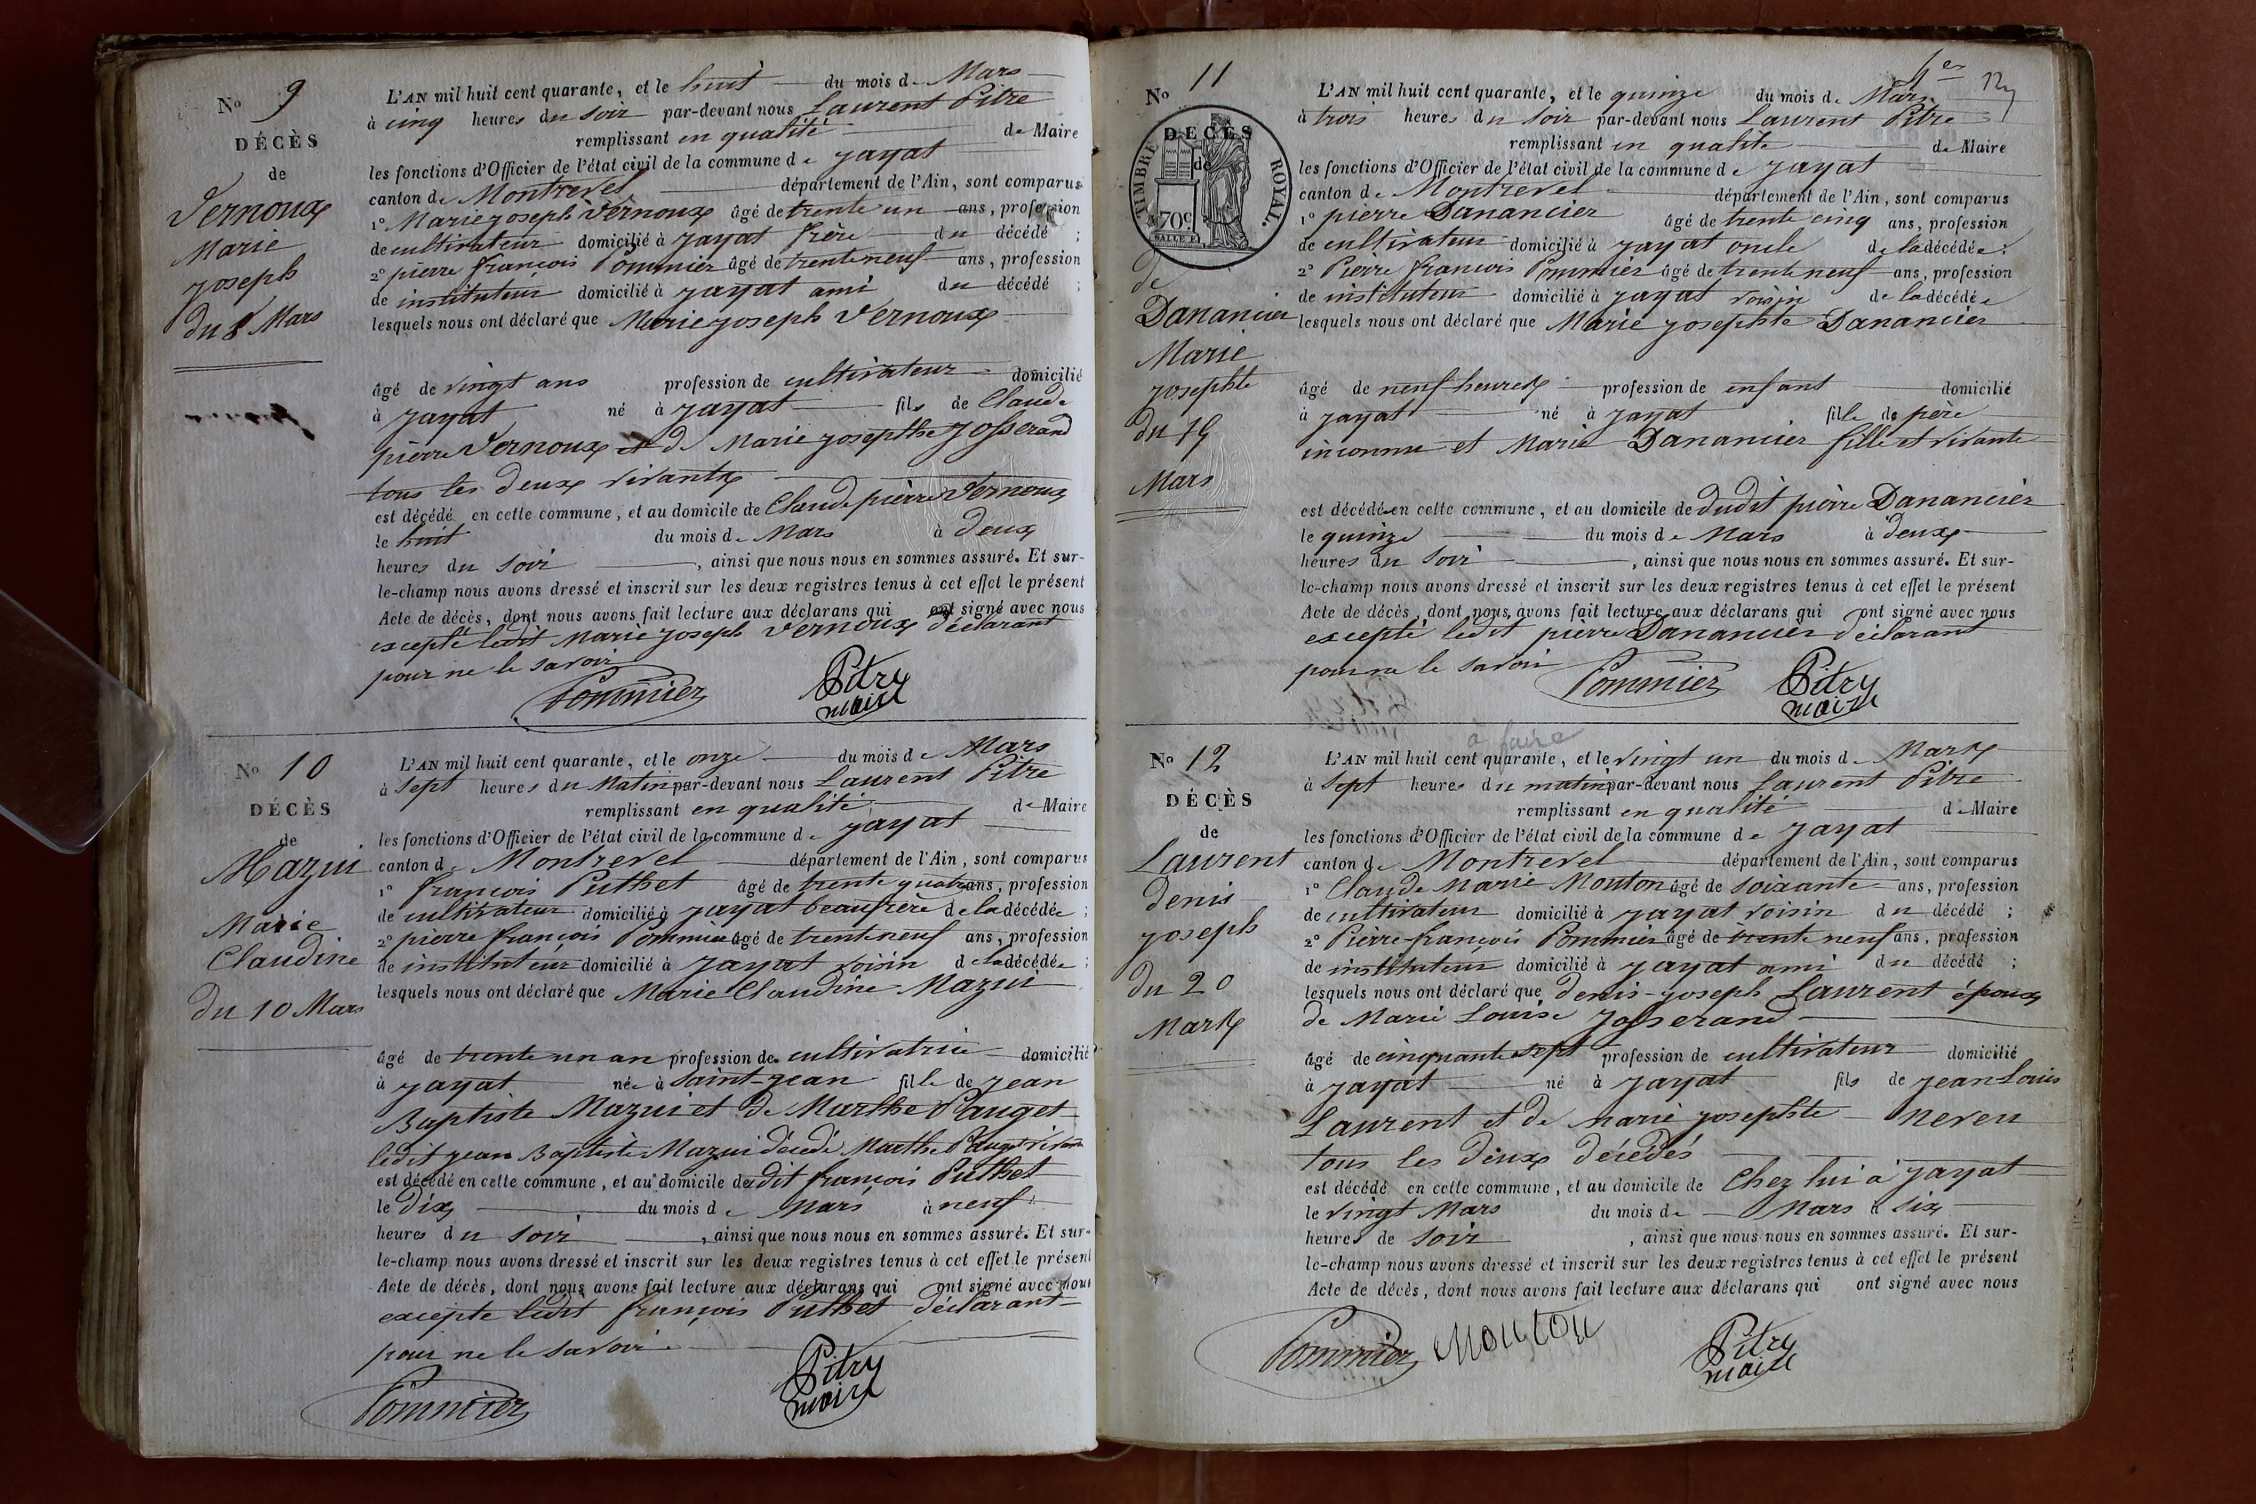 No 9
DÉCÈS
de
Vernoux
Marie
joseph
du 8 Mars
L'AN mil huit cent quarante, et le huit du mois de Mars
à cinq heures du soir par-devant nous Laurent Pitre
remplissant en qualité de Maire
les fonctions d'Officier de l'état civil de la commune de jayat
canton de Montrevel département de l'Ain, sont comparus
1° Marie joseph Vernoux âgé de trente un ans, profession
de cultivateur domicilié à jayat frère du décédé ;
2° pierre françois Pommier âgé de trente neuf ans, profession
de instituteur domicilié à jayat ami du décédé ;
lesquels nous ont déclaré que Marie joseph Vernoux
âgé de vingt ans profession de cultivateur domicilié
à jayat né à jayat fils de Claude
pierre Vernoux et de Marie josephte josserand
tous les deux vivants
est décédé en cette commune, et au domicile de Claude pierre Vernoux
le huit du mois de Mars à deux
heures du soir , ainsi que nous nous en sommes assuré. Et sur-
le-champ nous avons dressé et inscrit sur les deux registres tenus à cet effet le présent
Acte de décès, dont nous avons fait lecture aux déclarans qui ont signé avec nous
excepté ledit Marie joseph Vernoux déclarant
pour ne le savoir
Pommier Pitre
maire
No 10
DÉCÈS
de
Mazui
Marie
Claudine
du 10 Mars
L'AN mil huit cent quarante, et le onze du mois de Mars
à sept heures du Matin par-devant nous Laurent Pitre
remplissant en qualité de Maire
les fonctions d'Officier de l'état civil de la commune de jayat
canton de Montrevel département de l'Ain, sont comparus
1° françois Puthet âgé de trente quatre ans, profession
de cultivateur domicilié à jayat beaufrère de la décédée ;
2° pierre françois Pommier âgé de trente neuf ans, profession
de instituteur domicilié à jayat voisin de la décédée ;
lesquels nous ont déclaré que Marie Claudine Mazui
âgé de trente un an profession de cultivatrice domicilié
à jayat née à Saint-jean fille de jean
Baptiste Mazui et de Marthe Pauget
ledit jean Baptiste Mazui décédé Marthe Pauget vivante
est décédé en cette commune, et au domicile dudit françois Puthet
le dix du mois de Mars à neuf
heures du soir , ainsi que nous nous en sommes assuré. Et sur-
le-champ nous avons dressé et inscrit sur les deux registres tenus à cet effet le présent
Acte de décès, dont nous avons fait lecture aux déclarans qui ont signé avec nous
excepté ledit françois Puthet déclarant
pour ne le savoir
Pommier Pitre
maire
No 11
DÉCÈS
de
TIMBRE ROYAL.
70c.
de
Danancier
Marie
josephte
du 15
Mars
L'AN mil huit cent quarante, et le quinze du mois de Mars
à trois heures du soir par-devant nous Laurent Pitre
remplissant en qualité de Maire
les fonctions d'Officier de l'état civil de la commune de jayat
canton de Montrevel département de l'Ain, sont comparus
1° pierre Danancier âgé de trente cinq ans, profession
de cultivateur domicilié à jayat oncle de la décédée ;
2° Pierre françois Pommier âgé de trente neuf ans, profession
de instituteur domicilié à jayat voisin de la décédée
lesquels nous ont déclaré que Marie josephte Danancier
âgé de neuf heures profession de enfant domicilié
à jayat né à jayat fille de père
inconnu et Marie Danancier fille et vivante
est décédée en cette commune, et au domicile de dudit pierre Danancier
le quinze du mois de Mars à deux
heures du soir , ainsi que nous nous en sommes assuré. Et sur-
le-champ nous avons dressé et inscrit sur les deux registres tenus à cet effet le présent
Acte de décès, dont nous avons fait lecture aux déclarans qui ont signé avec nous
excepté ledit pierre Danancier déclarant
pour ne le savoir
Pommier Pitre
maire
à faire
No 12
DÉCÈS
de
Laurent
denis
joseph
du 20
Mars
L'AN mil huit cent quarante, et le vingt un du mois de Mars
à sept heures du matin par-devant nous Laurent Pitre
remplissant en qualité de Maire
les fonctions d'Officier de l'état civil de la commune de jayat
canton de Montrevel département de l'Ain, sont comparus
1° Claude Marie Mouton âgé de soixante ans, profession
de cultivateur domicilié à jayat voisin du décédé ;
2° Pierre-françois Pommier âgé de trente neuf ans, profession
de instituteur domicilié à jayat ami du décédé ;
lesquels nous ont déclaré que denis-joseph Laurent époux
de Marie Louise josserand
âgé de cinquante sept profession de cultivateur domicilié
à jayat né à jayat fils de jean Louis
Laurent et de marie josephte neveu
tous les deux décédés
est décédé en cette commune, et au domicile de Chez lui à jayat
le vingt Mars du mois de Mars à six
heures de soir , ainsi que nous nous en sommes assuré. Et sur-
le-champ nous avons dressé et inscrit sur les deux registres tenus à cet effet le présent
Acte de décès, dont nous avons fait lecture aux déclarans qui ont signé avec nous
Pommier Mouton Pitre
maire